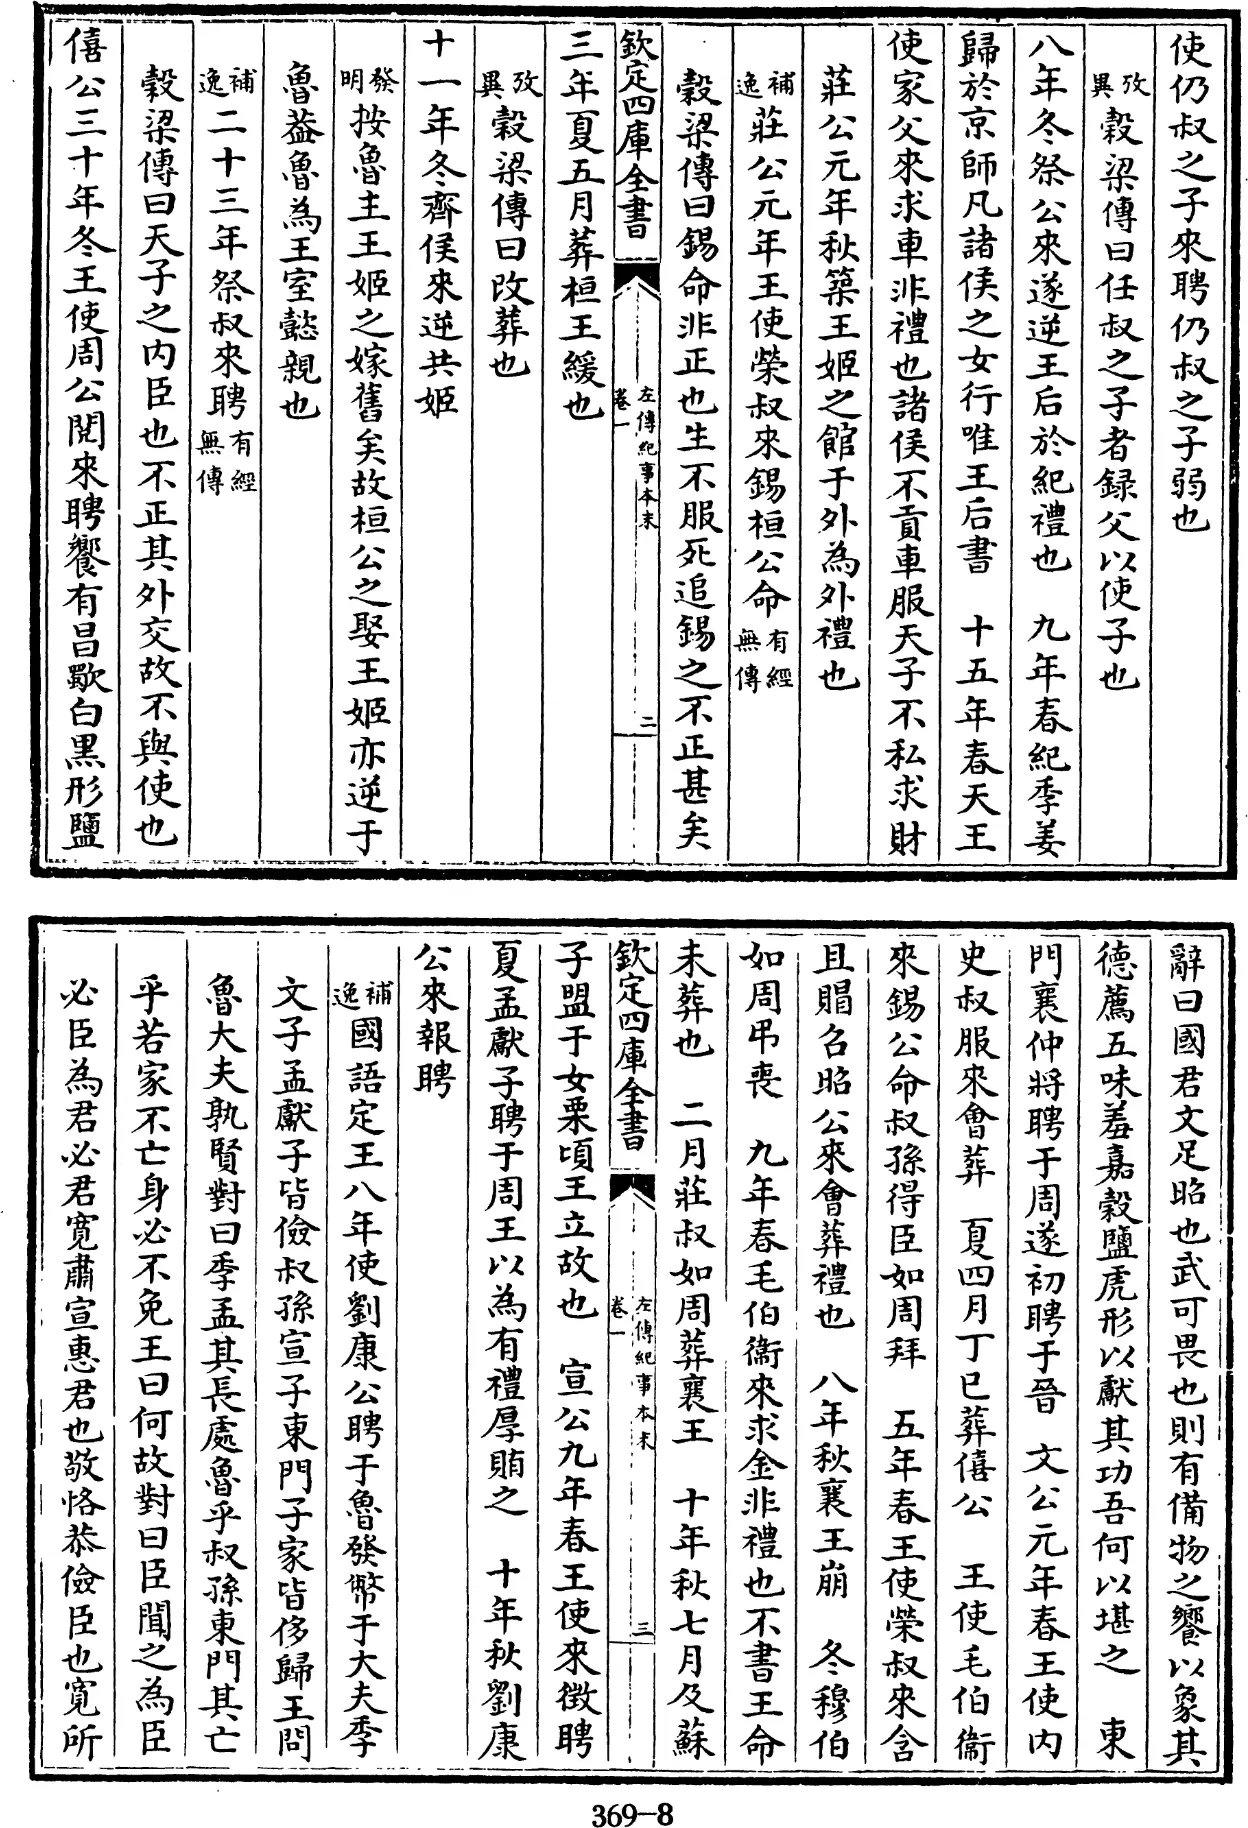 使仍叔之子來聘仍叔之子弱也
攷異穀梁傳曰任叔之子者録父以使子也
八年冬祭公來遂逆王后於紀禮也　九年春紀季姜
歸於京師凡諸侯之女行唯王后書　十五年春天王
使家父來求車非禮也諸侯不貢車服天子不私求財
莊公元年秋築王姬之館于外為外禮也
補逸莊公元年王使榮叔來錫桓公命有經無傳
穀梁傳曰錫命非正也生不服死追錫之不正甚矣
欽定四庫全書
左傳紀事本末
卷一
二
三年夏五月葬桓王緩也
攷異穀梁傳曰改葬也
十一年冬齊侯來逆共姬
發明按魯主王姬之嫁舊矣故桓公之娶王姬亦逆于
魯葢魯為王室懿親也
補逸二十三年祭叔來聘有經無傳
穀梁傳曰天子之内臣也不正其外交故不與使也
僖公三十年冬王使周公閱來聘饗有昌歜白黑形鹽
辭曰國君文足昭也武可畏也則有備物之饗以象其
德薦五味羞嘉穀鹽虎形以獻其功吾何以堪之　東
門襄仲將聘于周遂初聘于晉　文公元年春王使内
史叔服來會葬　夏四月丁巳葬僖公　王使毛伯衞
來錫公命叔孫得臣如周拜　五年春王使榮叔來含
且賵召昭公來會葬禮也　八年秋襄王崩　冬穆伯
如周弔喪　九年春毛伯衞來求金非禮也不書王命
未葬也　二月莊叔如周葬襄王　十年秋七月及蘇
欽定四庫全書
左傳紀事本末
卷一
三
子盟于女栗頃王立故也　宣公九年春王使來徴聘
夏孟獻子聘于周王以為有禮厚賄之　十年秋劉康
公來報聘
補逸國語定王八年使劉康公聘于魯發幣于大夫季
文子孟獻子皆儉叔孫宣子東門子家皆侈歸王問
魯大夫孰賢對曰季孟其長處魯乎叔孫東門其亡
乎若家不亡身必不免王曰何故對曰臣聞之為臣
必臣為君必君寛肅宣惠君也敬恪恭儉臣也寛所
369-8